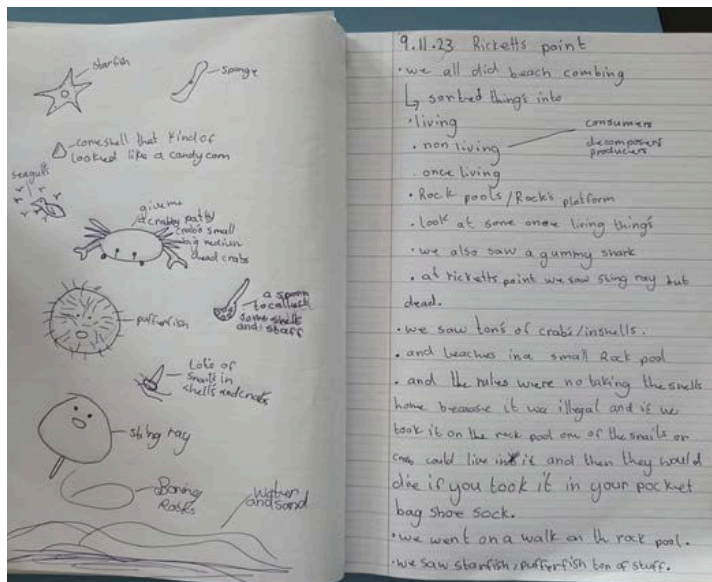 starfish
sponge
coneshell that kind of
looked like a candycorn
seagulls
give me
a crabby patty
crabs small
big medium
dead crabs
pufferfish
a spoon
to collect
some shells
and stuff
Lots of
snails in
shells and crabs
sting ray
Boring
Rocks
water
and sand
9.11.23 Ricketts point
• we all did beach combing
↳ sorted thing's into
• living
• non living
consumers
decomposers
producers
• once living
• Rock pools/Rock's platform
• look at some once living thing's
• we also saw a gummy shark
• at ricketts point we saw sting ray but
dead.
• we saw ton's of crabs/inshells.
• and leaches in a small Rock pool
• and the rules were no taking the shells
home because it was illegal and if we
took it on the rock pool one of the snails or
crab could live in it and then they would
die if you took it in your pocket
bag shoe sock.
• we went on a walk on th rock pool.
• we saw starfish, pufferfish ton of stuff.